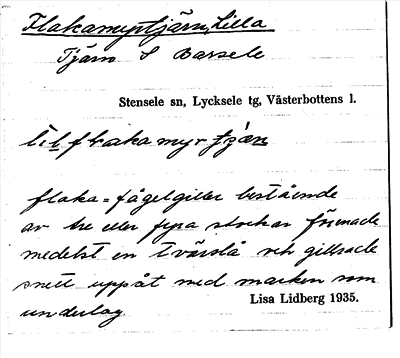 Flakamyrtjärn, Lilla
Tjärn S Barsele
Stensele sn, Lycksele tg, Västerbottens l.
flaka = fågelgiller bestående
av tre eller fyra stockar förenade
medelst en tvärslå och gillrade
snett uppåt med marken som
underlag.
Lisa Lidberg 1935.